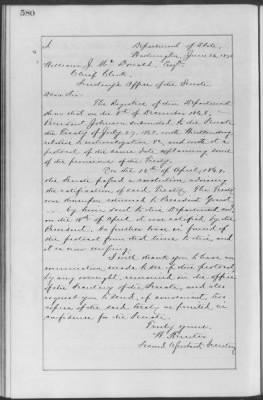 580
Department of State,
Washington, June 26, 18
William J. McDonald, Esq
Chief Clerk
Office of the Senate
Dear Sir:
The Registers of this Department
show that on the 5th of December 1868,
President Johnson submitted to the Senate
the Treaty of July 27, 1868, with
relative to naturalization &c, and with it a
protocol of the same date explaining some
of the provisions of the Treaty.
On the of April, 1869,
the Senate passed a resolution advising
the ratification of said Treaty. The Treaty
was returned to President Grant
by being sent to this Department and,
on the 18th of April it was ratified by the
President. No further trace is found of
the protocol from that time to this, and
it is now missing.
I will thank you to have an
examination made to see if the protocol,
by any oversight, remained in the office
of the Secretary of the Senate, and also
request you to send, if convenient, two
copies of the said treaty as printed, in
confidence for the Senate.
Truly yours,
W. Hunter
Second Assistant Secretary